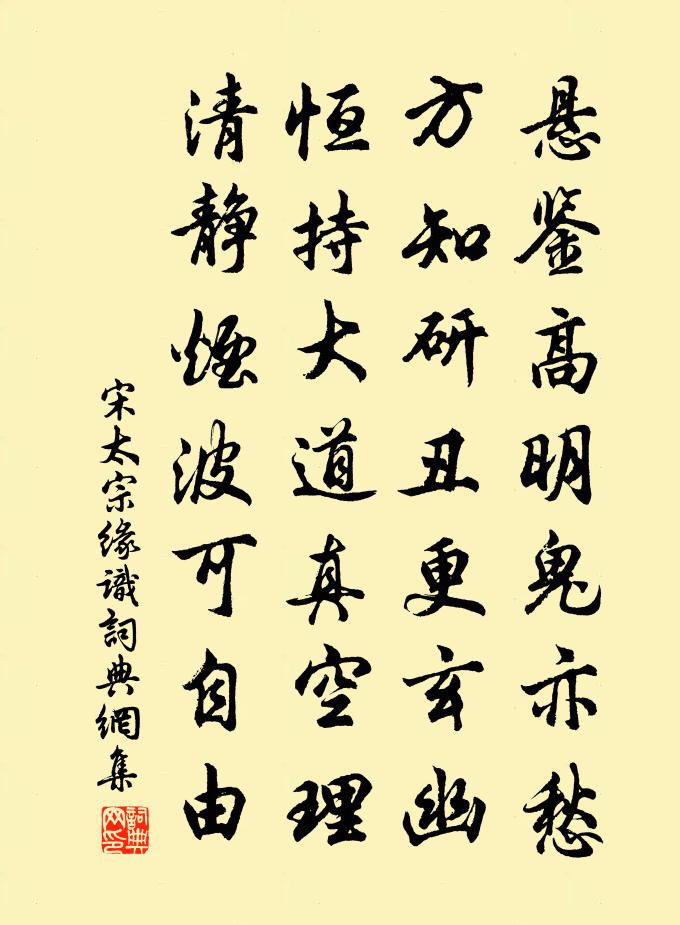 悬鉴高明鬼亦愁
方知研丑更玄幽
恒持大道真空理
清静烟波可自由
宋太宗缘識詞典網集
詞典网印